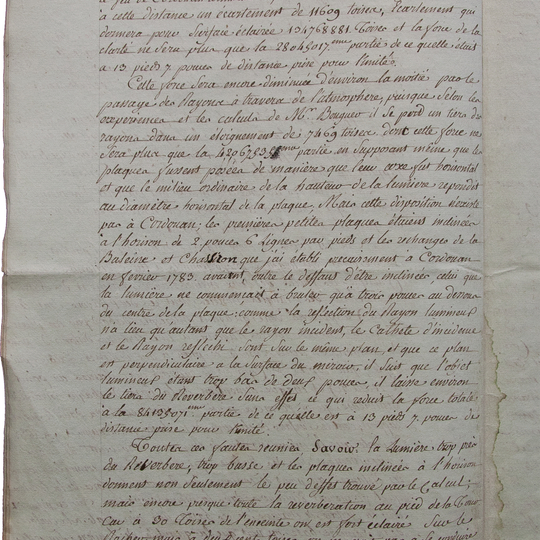 à cette distance un écartement de 11609 toises, Ecartement qui
donnera pour Surface éclairée 134768881 Toises et la force de la
clarté ne Sera plus que la 28045017.me partie de ce quelle étoit
a 13 pieds 7 pouces de distance prise pour l'unité.
Cette force Sera encore diminuée d'environ la moitié par le
passage des Rayons à travers de l'atmosphère, puisque Selon les
expériences et les calculs de Mr. Bouguer il Se perd un tiers des
rayons dans un éloignement de 7469 toises, dont cette force ne
Sera plus que la partie en Supposant même que les
plaques fussent posées de manière que leur axe fut horisontal
et que le milieu ordinaire de la hauteur de la lumière repondit
au diamétre horisontal de la plaque, Mais cette disposition n'existe
pas à Cordouan; les premières petites plaques étaient inclinées
à l'horison de 2 pouces 6 Lignes par pieds et les rechanges de la
Baleine et Chassiron que j'ai établi precisement à Cordouan
en fevrier 1783 avaient, outre le deffaut d'être inclinées, celui que
la lumière ne commençait à bruler qu'à trois pouces au dessous
du centre de la plaque: comme la reflection du Rayon lumineux
n'a lieu qu'autant que le rayon incident, le Cathete d'incidence
et le Rayon reflechi Sont Sur le même plan, et que ce plan
est perpendiculaire a la Surface du miroir, il Suit que l'objet
lumineux étant trop bas de deux pouces, il laisse environ
le tiers du Reverbère Sans effet ce qui reduit la force totale
à la 84135071.me partie de ce qu'elle est à 13 pieds 7 pouces de
distance prise pour l'unité.
Toutes ces fautes reunies, Savoir la Lumière trop près
du Reverbere, trop basse et les plaques inclinées à l'horison
donnent non Seulement le peu d'effet trouvé par le Calcul;
mais encore presque toute la reverberation au pied de la Tour
Car à 30 Toises de l'enceinte on est fort éclairé Sur le